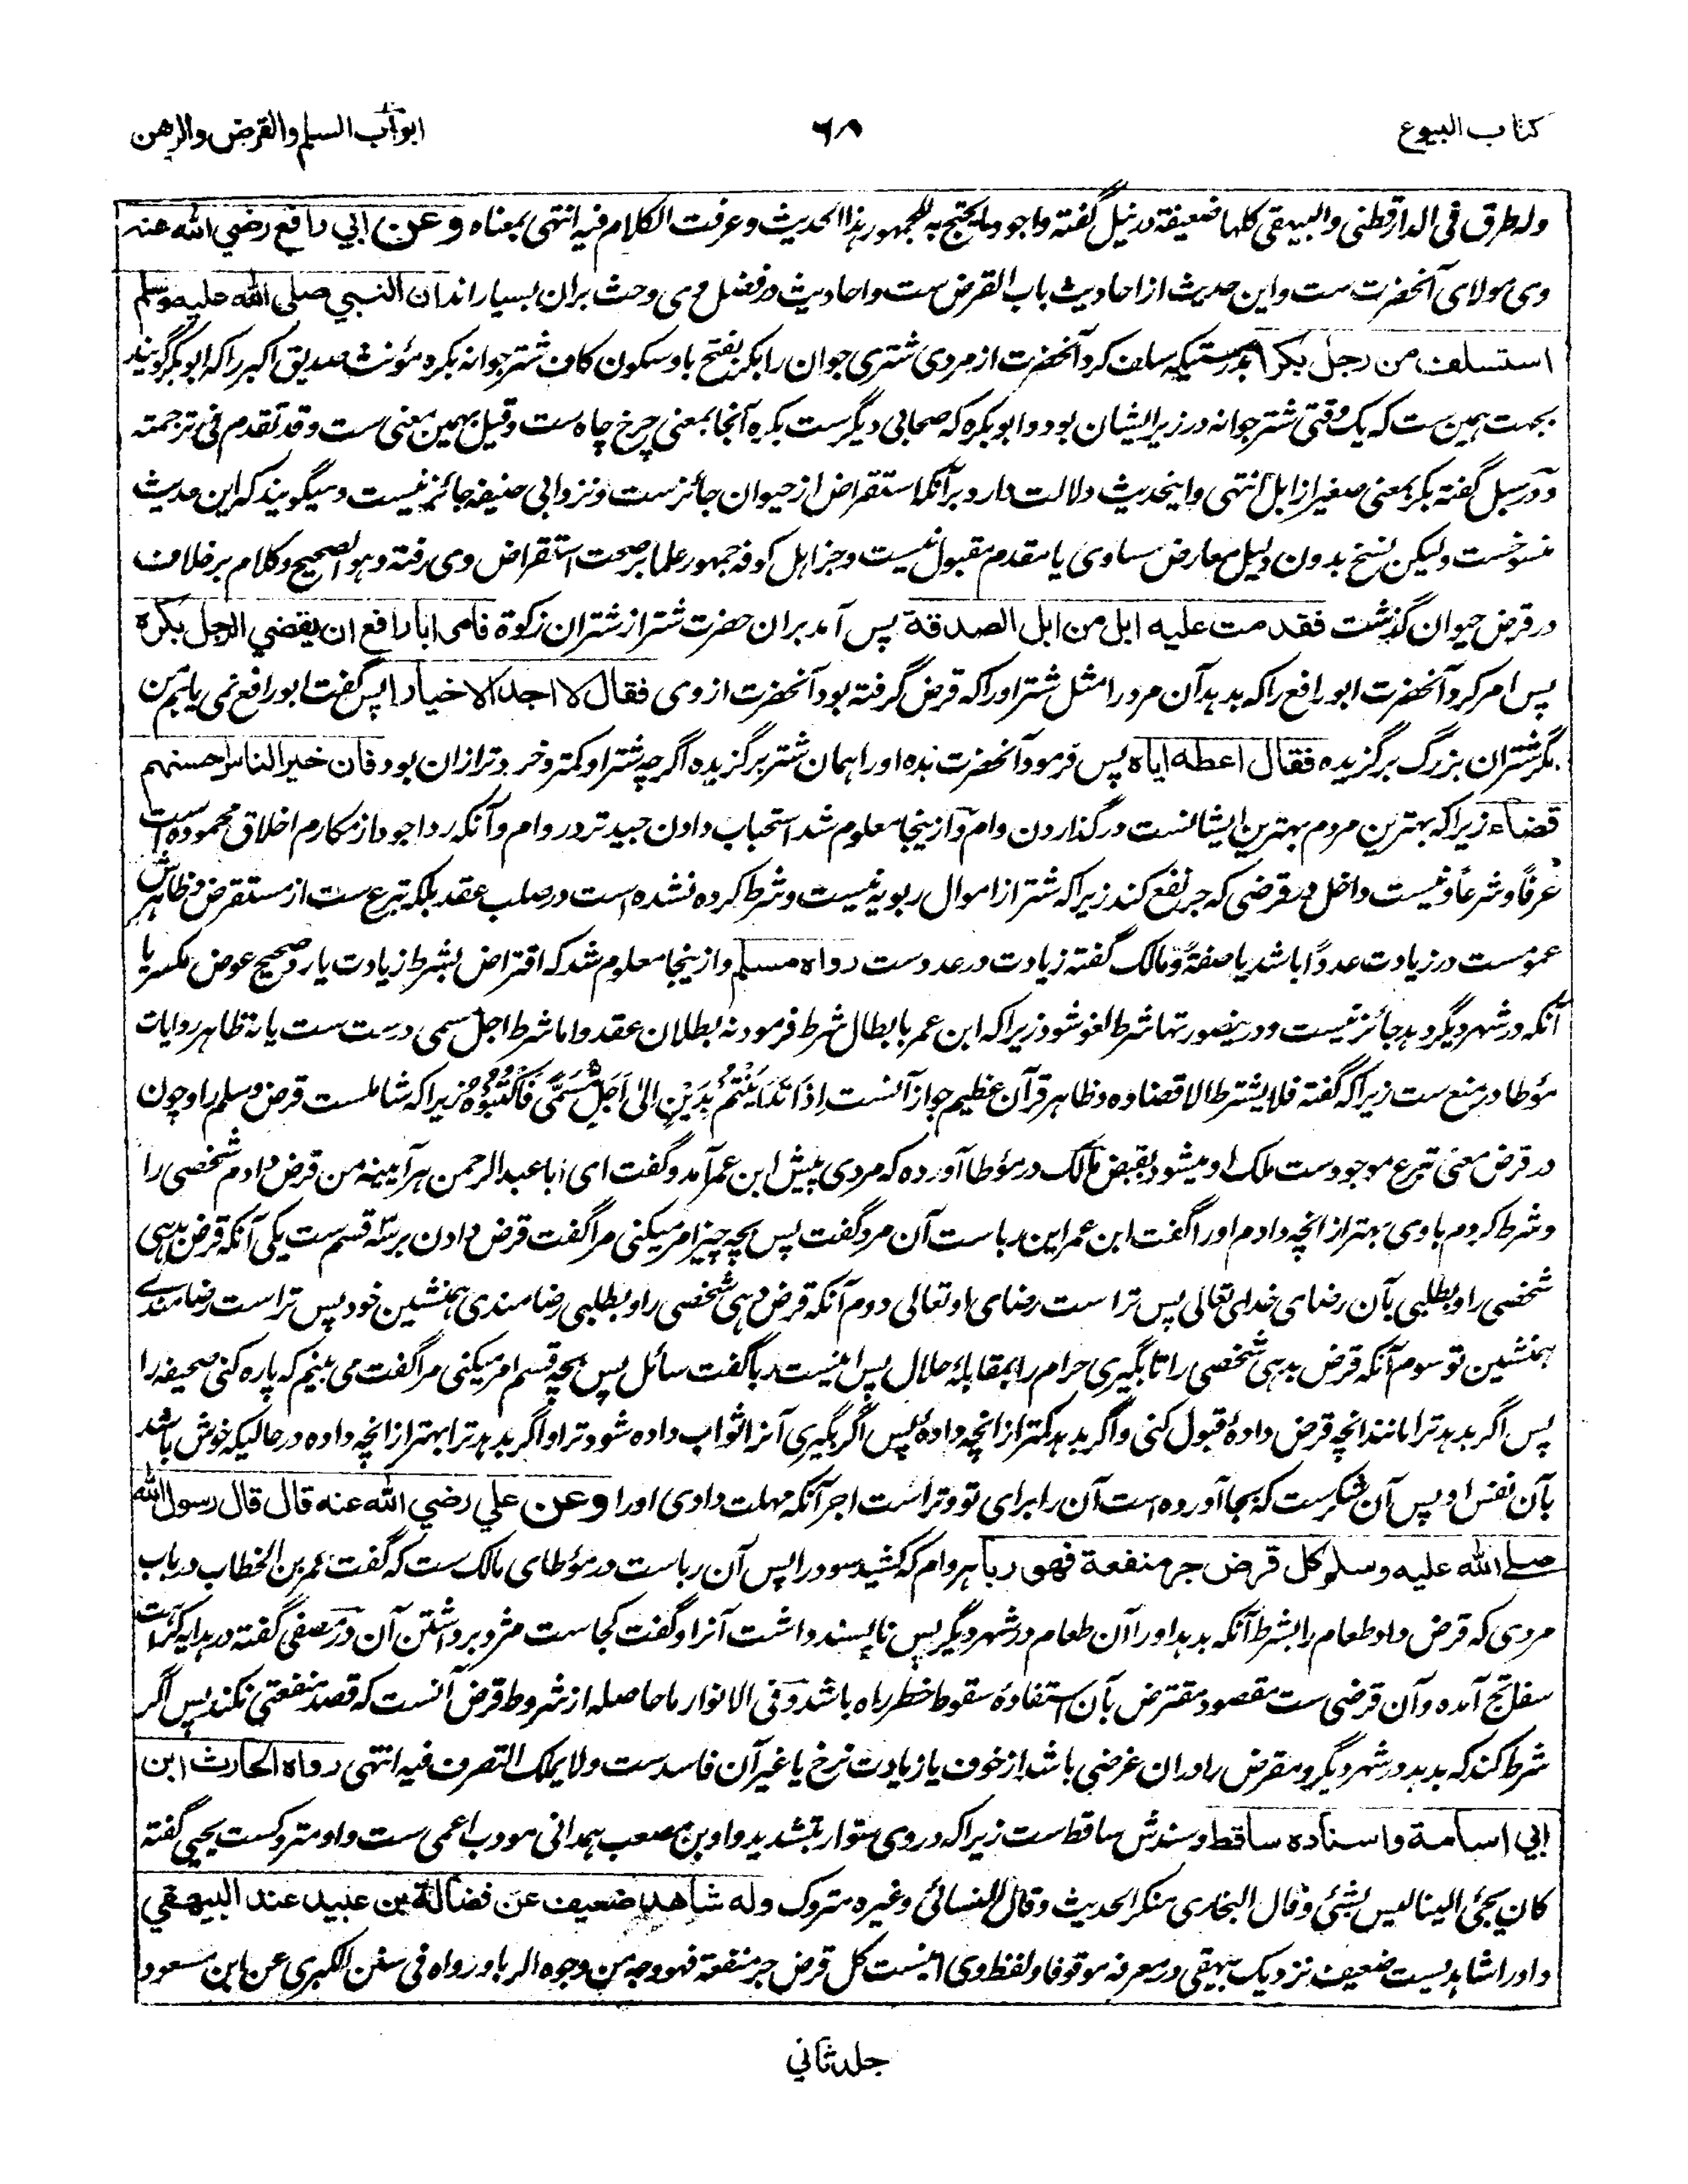 كتاب البيوع
٦٨
ابواب السلم والقرض والرهن
وله طرق فى الدارقطنى والبيهقى كلها ضعيفة در نيل گفته واجود ما يحتج به للجمهور هذا الحديث وعرفت الكلام فيه انتهى بمعناه وعن ابي رافع رضي الله عنه
وى مولاى آنحضرت ست واين حديث از احاديث باب القرض ست واحاديث در فضل وى وحث بران بسيار اند ان النبي صلى الله عليه وسلم
استسلف من رجل بكرا بدرستيكه سلف كرد آنحضرت از مردى شترى جوان را بكر بفتح با وسكون كاف شتر جوانه بكره مؤنث صديق اكبر را كه ابو بكر گويند
بجهت همين ست كه يك وقتى شتر جوانه در زير ايشان بود وابو بكره كه صحابى ديگرست بكره آنجا بمعنى چرخ چاه ست وقيل بهمين معنى ست وقد تقدم فى ترجمته
ودر سبل گفته بكر بمعنى صغير از ابل انتهى واينحديث دلالت دارد برآنكه استقراض از حيوان جائزست ونزد ابى حنيفه جائز نيست وميگويند كه اين حديث
منسوخست وليكن نسخ بدون دليل معارض مساوى يا مقدم مقبول نيست وجز اهل كوفه جمهور علما بر صحت استقراض وى رفته وهو الصحيح وكلام بر خلاف
در قرض حيوان گذشت فقدمت عليه ابل من ابل الصدقة پس آمد بران حضرت شتر از شتران زكوة فامر ابا رافع ان يقضي الرجل بكره
پس امر كرد آنحضرت ابو رافع را كه بدهد آن مرد را مثل شتر او را كه قرض گرفته بود آنحضرت از وى فقال لا اجد الا خيارا پس گفت ابو رافع نمى يابم من
مگر شتران بزرگ برگزيده فقال اعطه اياه پس فرمود آنحضرت بده او را همان شتر برگزيده اگرچه شتر او كمتر وخردتر ازان بود فان خير الناس احسنهم
قضاء زيرا كه بهترين مردم بهترين ايشانست در گذاردن وام وازينجا معلوم شد استحباب دادن جيدتر در وام وآنكه رد اجود از مكارم اخلاق محموده است
عرفاً وشرعاً ونيست داخل در قرضى كه جر نفع كند زيرا كه شتر از اموال ربويه نيست وشرط كرده نشده است در صلب عقد بلكه تبرع ست از مستقرض وظاهرش
عموست در زيادت عدداً باشد يا صفةً ومالك گفته زيادت در عددست رواه مسلم وازينجا معلوم شد كه اقتراض بشرط زيادت يا رد صحيح عوض مكسر يا
آنكه در شهر ديگر دهد جائز نيست ودرينصورتها شرط لغو شود زيرا كه ابن عمر بابطال شرط فرمود نه بطلان عقد واما شرط اجل مسمى درست ست يا نه ظاهر روايات
مؤطا در منع ست زيرا كه گفته فلا يشترط الا قضاءه وظاهر قرآن عظيم جواز آنست اِذَا تَدَايَنْتُمْ بِدَيْنٍ اِلىٰ اَجَلٍ مُّسَمًّى فَاكْتُبُوْهُ زيرا كه شاملست قرض وسلم را وچون
در قرض معنى تبرع موجودست ملك او ميشود بقبض مالك در مؤطا آورده كه مردى پيش ابن عمر آمد وگفت اى ابا عبد الرحمن هرآيينه من قرض دادم شخصى را
وشرط كردم با وى بهتر از انچه دادم او را گفت ابن عمر اين رباست آن مرد گفت پس بچه چيز امر ميكنى مرا گفت قرض دادن بر سه قسم ست يكى آنكه قرض بدهى
شخصى را وبطلبى بآن رضاى خداى تعالى پس تراست رضاى او تعالى دوم آنكه قرض دهى شخصى را وبطلبى رضامندى همنشين خود پس تراست رضامندے
همنشين تو سوم آنكه قرض بدهى شخصى را تا بگيرى حرام را بمقابلهٔ حلال پس اينست ربا گفت سائل پس بچه قسم امر ميكنى مرا گفت مى بينم كه پاره كنى صحيفه را
پس اگر بدهد ترا مانند انچه قرض دادهٔ قبول كنى واگر بدهد كمتر از انچه دادهٔ پس اگر بگيرى آنرا ثواب داده شود ترا واگر بدهد ترا بهتر از انچه داده در حاليكه خوش باشد
بآن نفس او پس آن شكرست كه بجا آورده است آن را براى تو وتراست اجر آنكه مهلت دادى او را وعن علي رضي الله عنه قال قال رسول الله
صلے الله عليه وسلم كل قرض جر منفعة فهو ربا هر وام كه كشيد سود را پس آن رباست در مؤطاى مالك ست كه گفت عمر بن الخطاب در باب
مردى كه قرض داد طعام را بشرط آنكه بدهد او را آن طعام در شهر ديگر پس ناپسند داشت آنرا وگفت كجاست مزد برداشتن آن در مصفى گفته در هدايه كراهت
سفاتج آمده وآن قرضى ست مقصود مقترض بآن استفادهٔ سقوط خطر راه باشد وفى الانوار ما حاصله از شروط قرض آنست كه قصد منفعتى نكند پس اگر
شرط كند كه بدهد در شهر ديگر ومقرض را دران غرضى باشد از خوف يا زيادت نرخ يا غير آن فاسدست ولا يملك التصرف فيه انتهى رواه الحارث ابن
ابي اسامة واسناده ساقط وسندش ساقط ست زيرا كه در وى سوار بتشديد واو بن مصعب همدانى مودب اعمى ست واو متروكست يحيى گفته
كان يجئ الينا ليس بشئ وقال البخارى منكر الحديث وقال النسائى وغيره متروك وله شاهد ضعيف عن فضالة بن عبيد عند البيهقي
واورا شاهديست ضعيف نزديك بيهقى در معرفه موقوفا ولفظ وى اينست كل قرض جر منفعة فهو وجه من وجوه الربا ورواه فى سنن الكبرى عن ابن مسعود
جلد ثاني